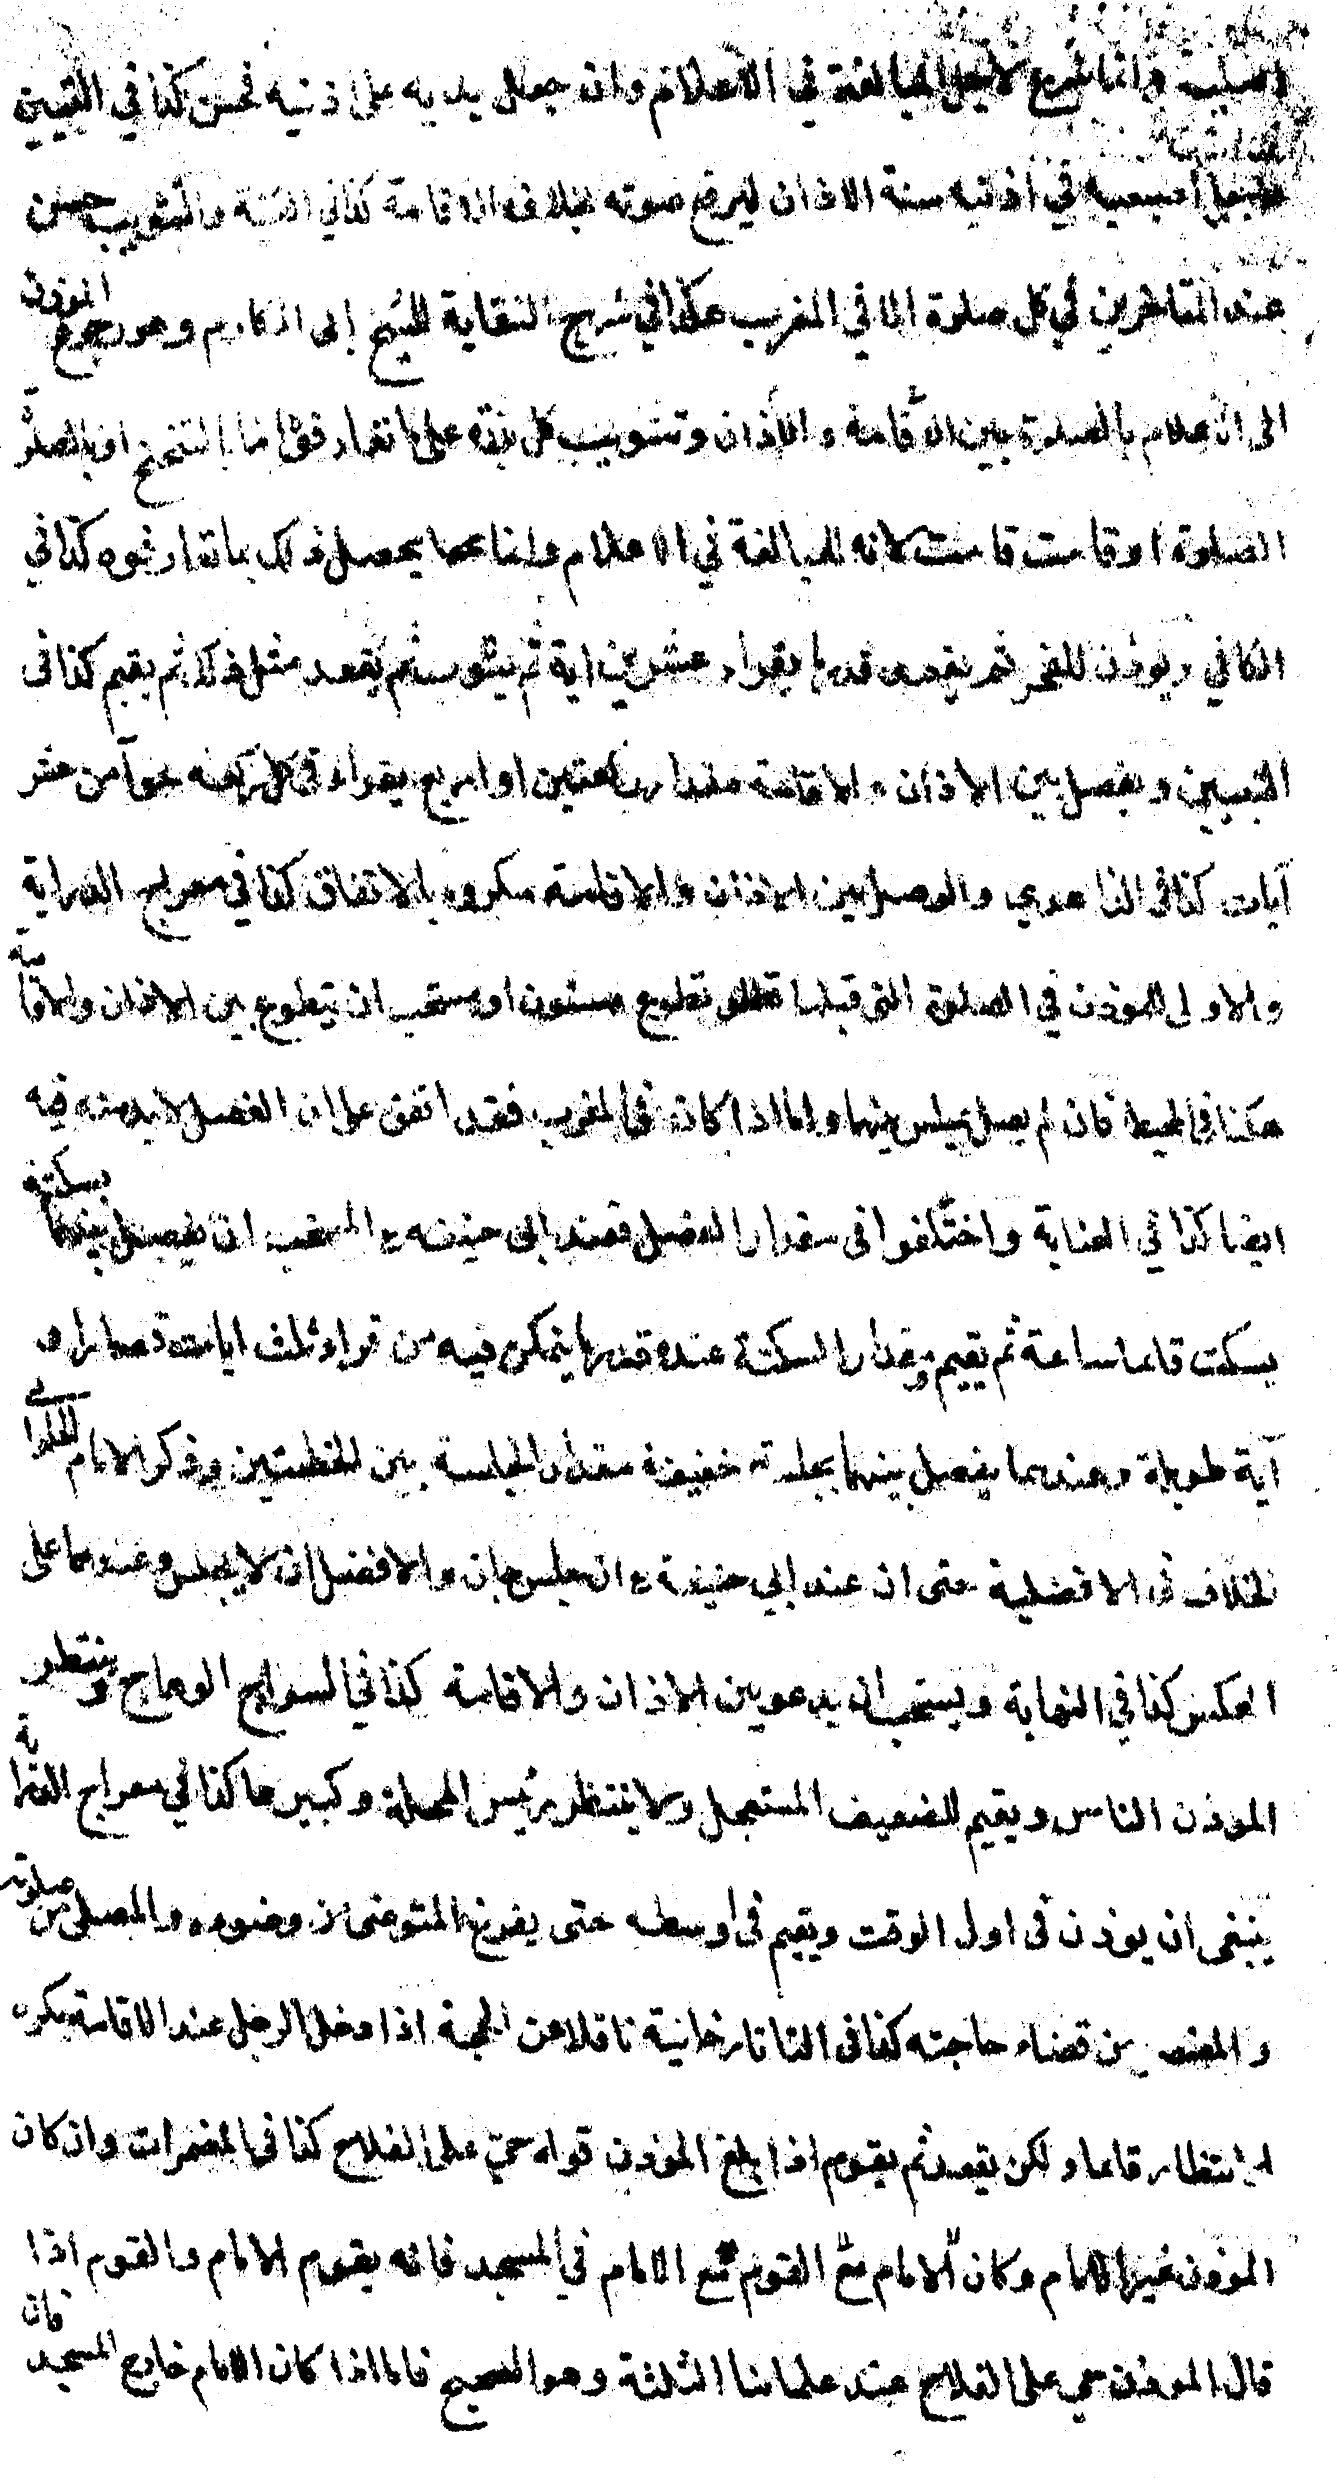 اصلية وانما شرع لاجل المبالغة في الاعلام وان جعل يديه على اذنيه فحسن كذا في التبيين
وجعل اصبعيه في أذنيه سنة الاذان ليرفع صوته بخلاف الاقامة كذا في القنية والتثويب حسن
عند المتاخرين في كل صلوة الا في المغرب هكذا في شرح النقاية للشيخ إبى المكارم وهو رجوع الموذن
الى الاعلام بالصلوة بين الاقامة والأذان وتثويب كل بلدة على ما تعارفوا اما بالتنحنح او بالصلوة
الصلوة او قامت قامت لانه للمبالغة في الاعلام وانما يحصل ذلك بما تعارفوه كذا في
الكافي ويوذن للفجر ثم يقعد قدر ما يقراء عشرين اية ثم يثوب ثم يقعد مثل ذلك ثم يقيم كذا فى
التبيين ويفصل بين الاذان والاقامة مقدار ركعتين او اربع يقراء في كل ركعة نحوا من عشر
آيات كذا فى الزاهدي والوصل بين الاذان والاقامة مكروه بالاتفاق كذا في معراج الدراية
والاولى للموذن في الصلوة التى قبلها تطوع مسنون او مستحب ان يتطوع بين الاذان والاقامة
هكذا في المحيط فان لم يصل يجلس بينهما واما اذا كان في المغرب فقد اتفق على ان الفصل لا بد منه فيه
ايضا كذا في العناية واختلفوا فى مقدار الفصل فعند ابى حنيفه ع المستحب ان يفصل بينهما بسكتة
يسكت قائما ساعة ثم يقيم ومقدار السكتة عنده قدر ما يتمكن فيه من قراءة ثلث ايات قصار او
آية طويلة وعندهما يفصل بينهما بجلسة خفيفة مقدار الجلسة بين الخطبتين وذكر الامام الحلوائي
الخلاف في الافضلية حتى ان عند إبي حنيفة ع ان جلس جاز والافضل ان لا يجلس وعندهما على
العكس كذا في النهاية ويستحب ان يدعو بين الاذان والاقامة كذا في السراج الوهاج وينتظر
الموذن الناس ويقيم للضعيف المستعجل ولا ينتظر رئيس المحلة وكبيرها كذا في معراج الدراية
ينبغى ان يوذن فى اول الوقت ويقيم فى اوسطه حتى يفرغ المتوضى من وضوءه والمصلى من صلوته
والمعتصر من قضاء حاجته كذا فى التاتارخانية ناقلا عن الحجة اذا دخل الرجل عند الاقامة يكره
له انتظار قائما ولكن يقعد ثم يقوم اذا بلغ الموذن قوله حي على الفلاح كذا في المضمرات وان كان
الموذن غير الامام وكان الامام مع القوم مع الامام في المسجد فانه يقوم الامام والقوم اذا
قال الموذن حي على الفلاح عند علمائنا الثلثة وهو الصحيح فاما اذا كان الامام خارج المسجد فان